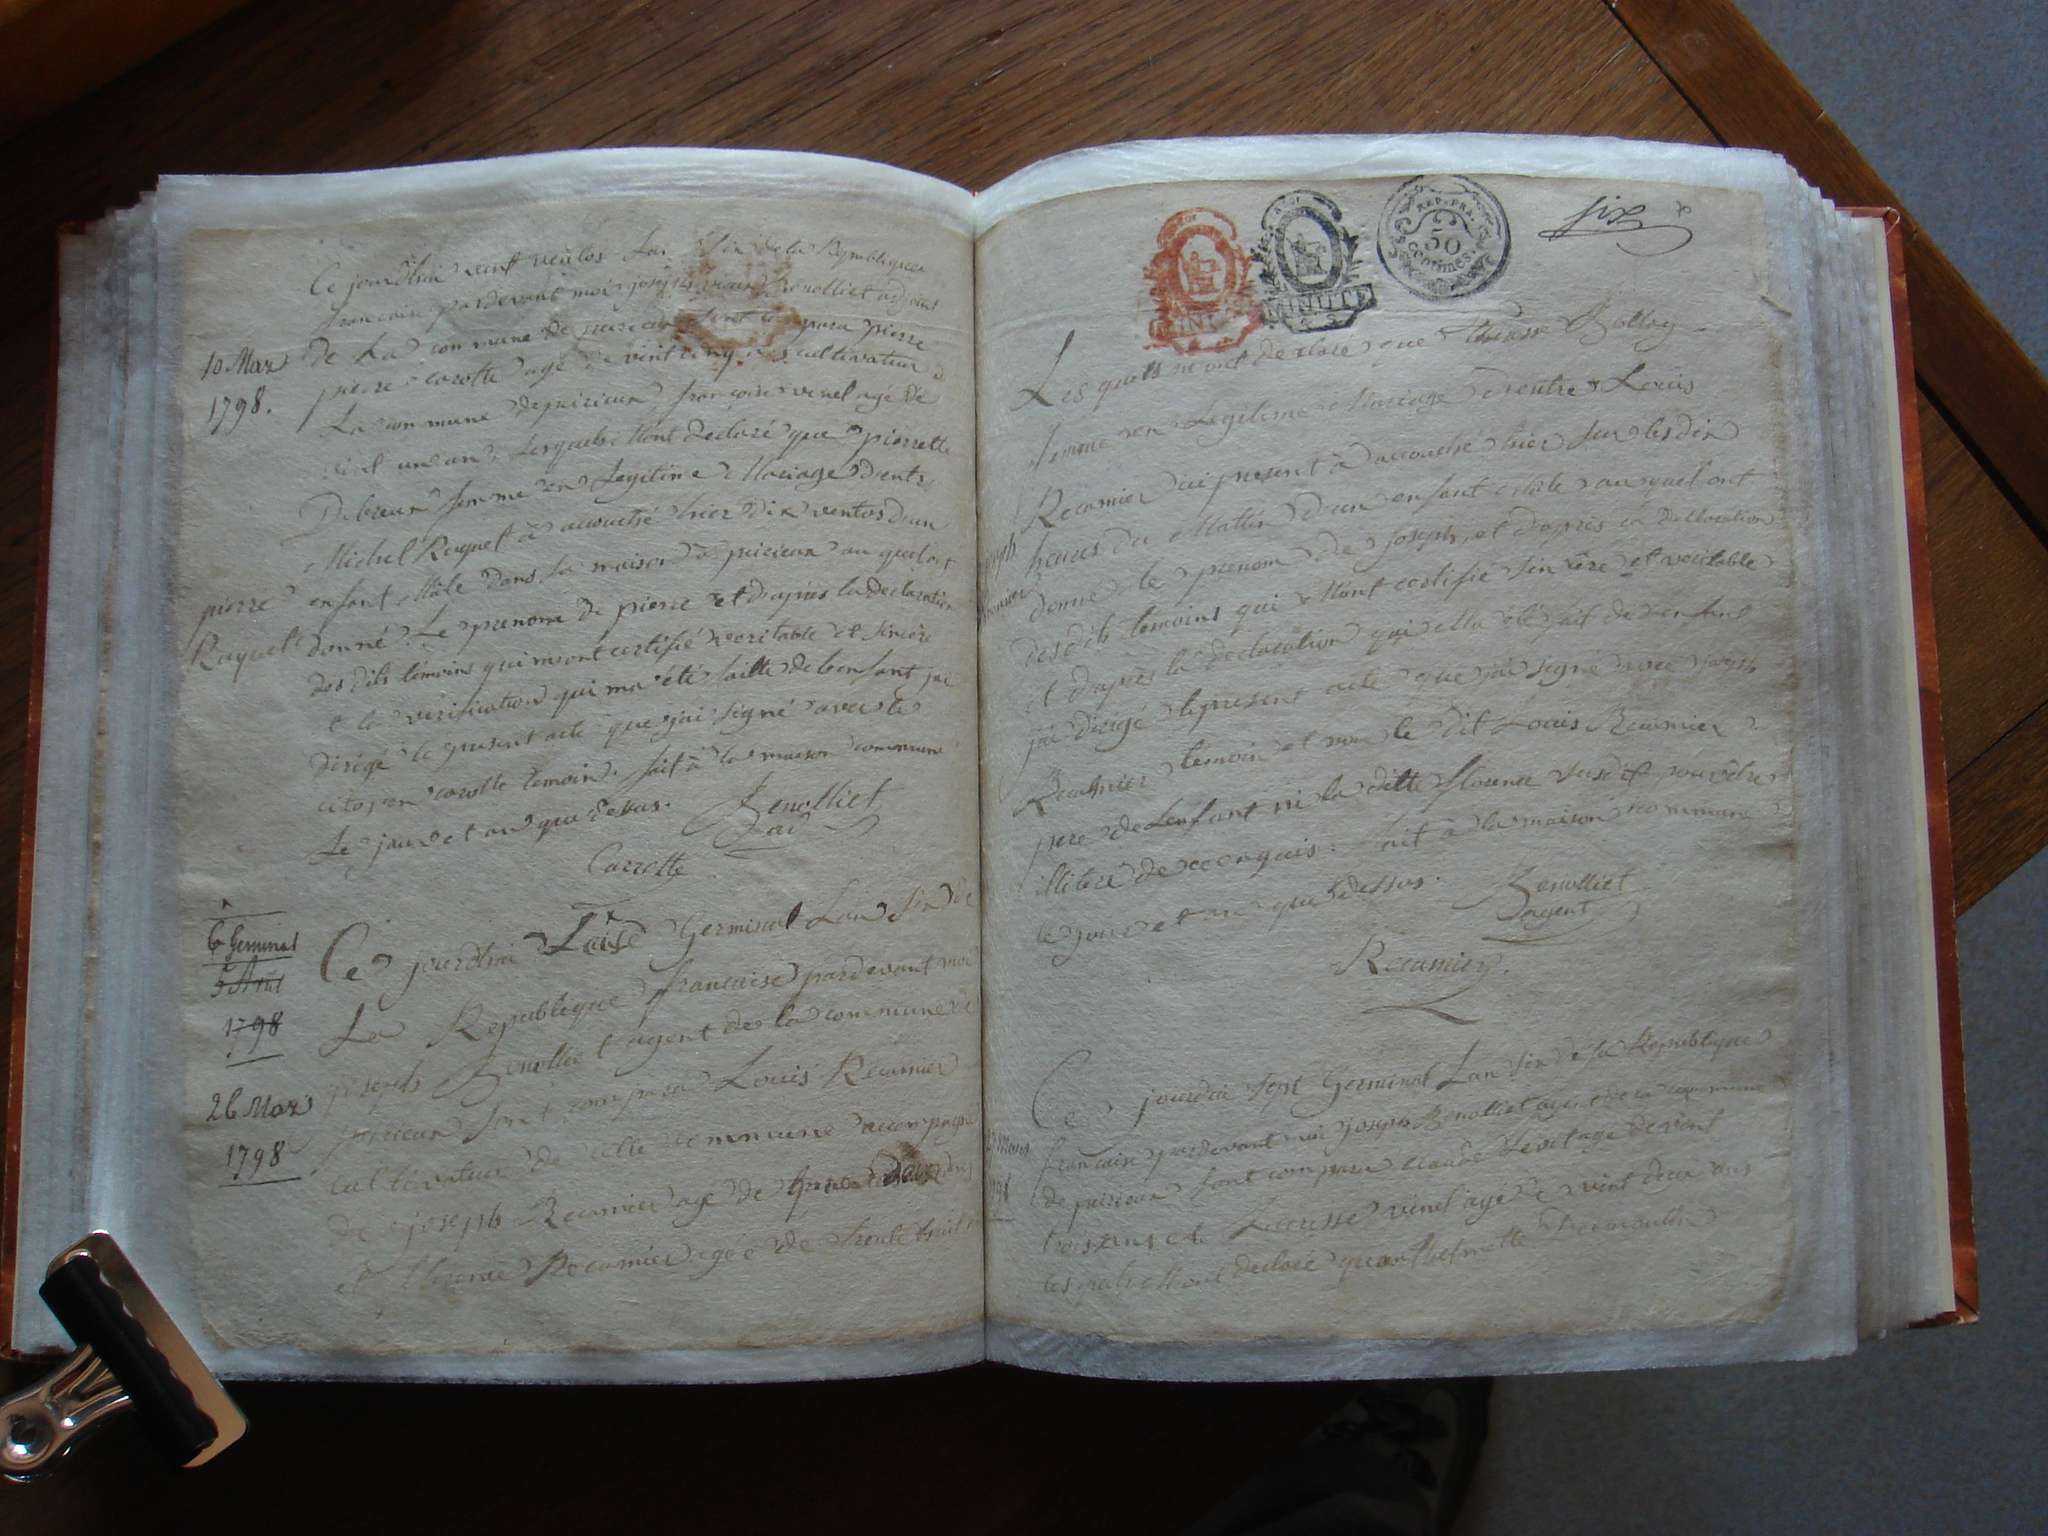 Ce jourdhui vint ventos Lan Six de la Republique
francaise pardevant moi joseph marie Benolliet adjoint
de La commune de puisieux sont compara pierre
pierre carotte agé de vint cinq ans cultivateur de
La commune de puisieux francoise vinel agé de
vint un an Lesquels Mont declaré que pierrette
femme en Legitime Mariage dentre
Michel Raquet à accouché hier dix ventos dun
enfant Mâle dans sa maison à puisieux au quel ont
donné Le prenom de pierre et daprès la declaration
des dits témoins qui mont certifié veritable et sincère
et la verification qui ma été faitte de lenfant jai
dirigé le present acte que jai signé avec le
citoyen carotte temoin. fait à la maison commune
Le jour et an que dessus. Benolliet
adj
Carrotte
10 Mars
1798.
pierre
Raquet
6 Germinal
5 Avril
1798
26 Mars
1798
Ce jourdhui Germinal Lan Six de
La Republique francaise pardevant moi
joseph Benolliet agent de la commune de
puisieux sont comparu Louis Recamier
cultivateur de cette commune accompagné
de joseph Recamier agé de deux ans
et florence Recamier agée de trente huit
six
MINUTE
MINUTE
REP. FRA.
50
Centimes
Les quels mont declaré que
femme en Legitime Mariage dentre Louis
Recamier ici present à accouché hier sur les dix
heures du Mattin dun enfant Male au quel ont
donné le prenom de joseph, et daprès la declaration
des dits temoins qui Mont certifié sincère et veritable
et daprès la declaration qui ma été fait de lenfant
jai dirigé le present acte que jai signé avec joseph
Recamier témoin et non le dit Louis Recamier
pere de lenfant ni la ditte florence susdit pour être
illitere de ce enquis. fait à la maison commune
le jour et an que dessus. Benolliet
agent
Recamier.
Ce jourdui sept Germinal Lan six de la Republique
francaise pardevant moi joseph Benolliet agent de la commune
de puisieux sont comparu claude agé de vint
trois ans et Lucresse vinel agé de vint deux ans
les quels Mont declaré